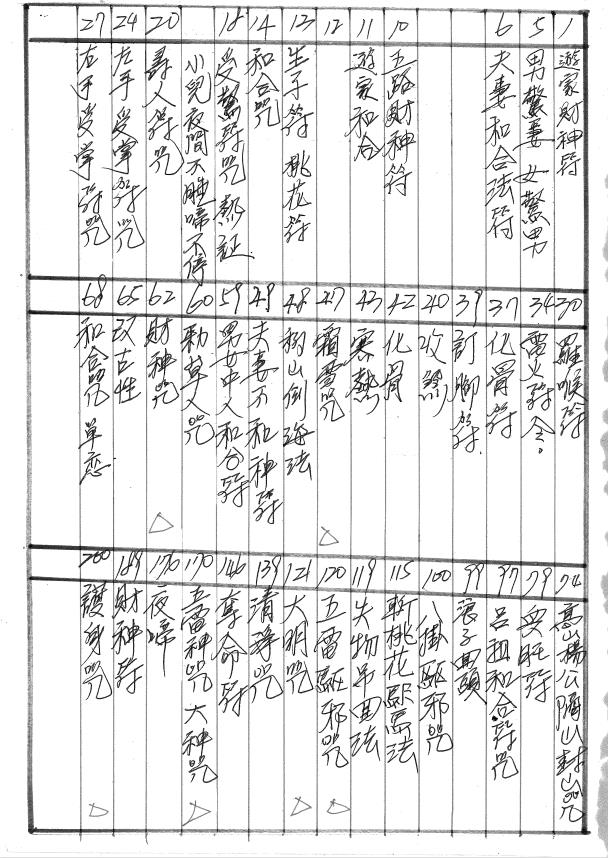 1 遊家財神符
5 男驚妻女驚男
6 夫妻和合法符
10 五路財神符
11 遊家和合
12
13 生子符 桃花符
14 和合咒
18 受驚符咒 熱証
小兒夜間不睡啼不停
20 壽人符咒
24 左手受掌符咒
27 右手受掌符咒
30 羅喉符
34 雷火符令
37 化骨符
39 訂腳符
40 收驚
42 化骨
43 寒熱
47 霜雪咒 △
48 移山倒海法
49 夫妻不和神符
59 男女中人和合符
60 勅草人咒
62 財神咒 △
65 改古性
68 和合咒 單戀
74 高山楊公隔山封山咒
79 興旺符
97 呂祖和合符咒
99 浪子回頭
100 八掛驅邪咒
115 斬桃花法
119 失物吊回法
120 五雷驅邪咒 △
121 大明咒 △
139 清淨咒
146 奪命符
170 五雷神咒 大神咒 △
176 夜啼
189 財神符
200 護身咒 △